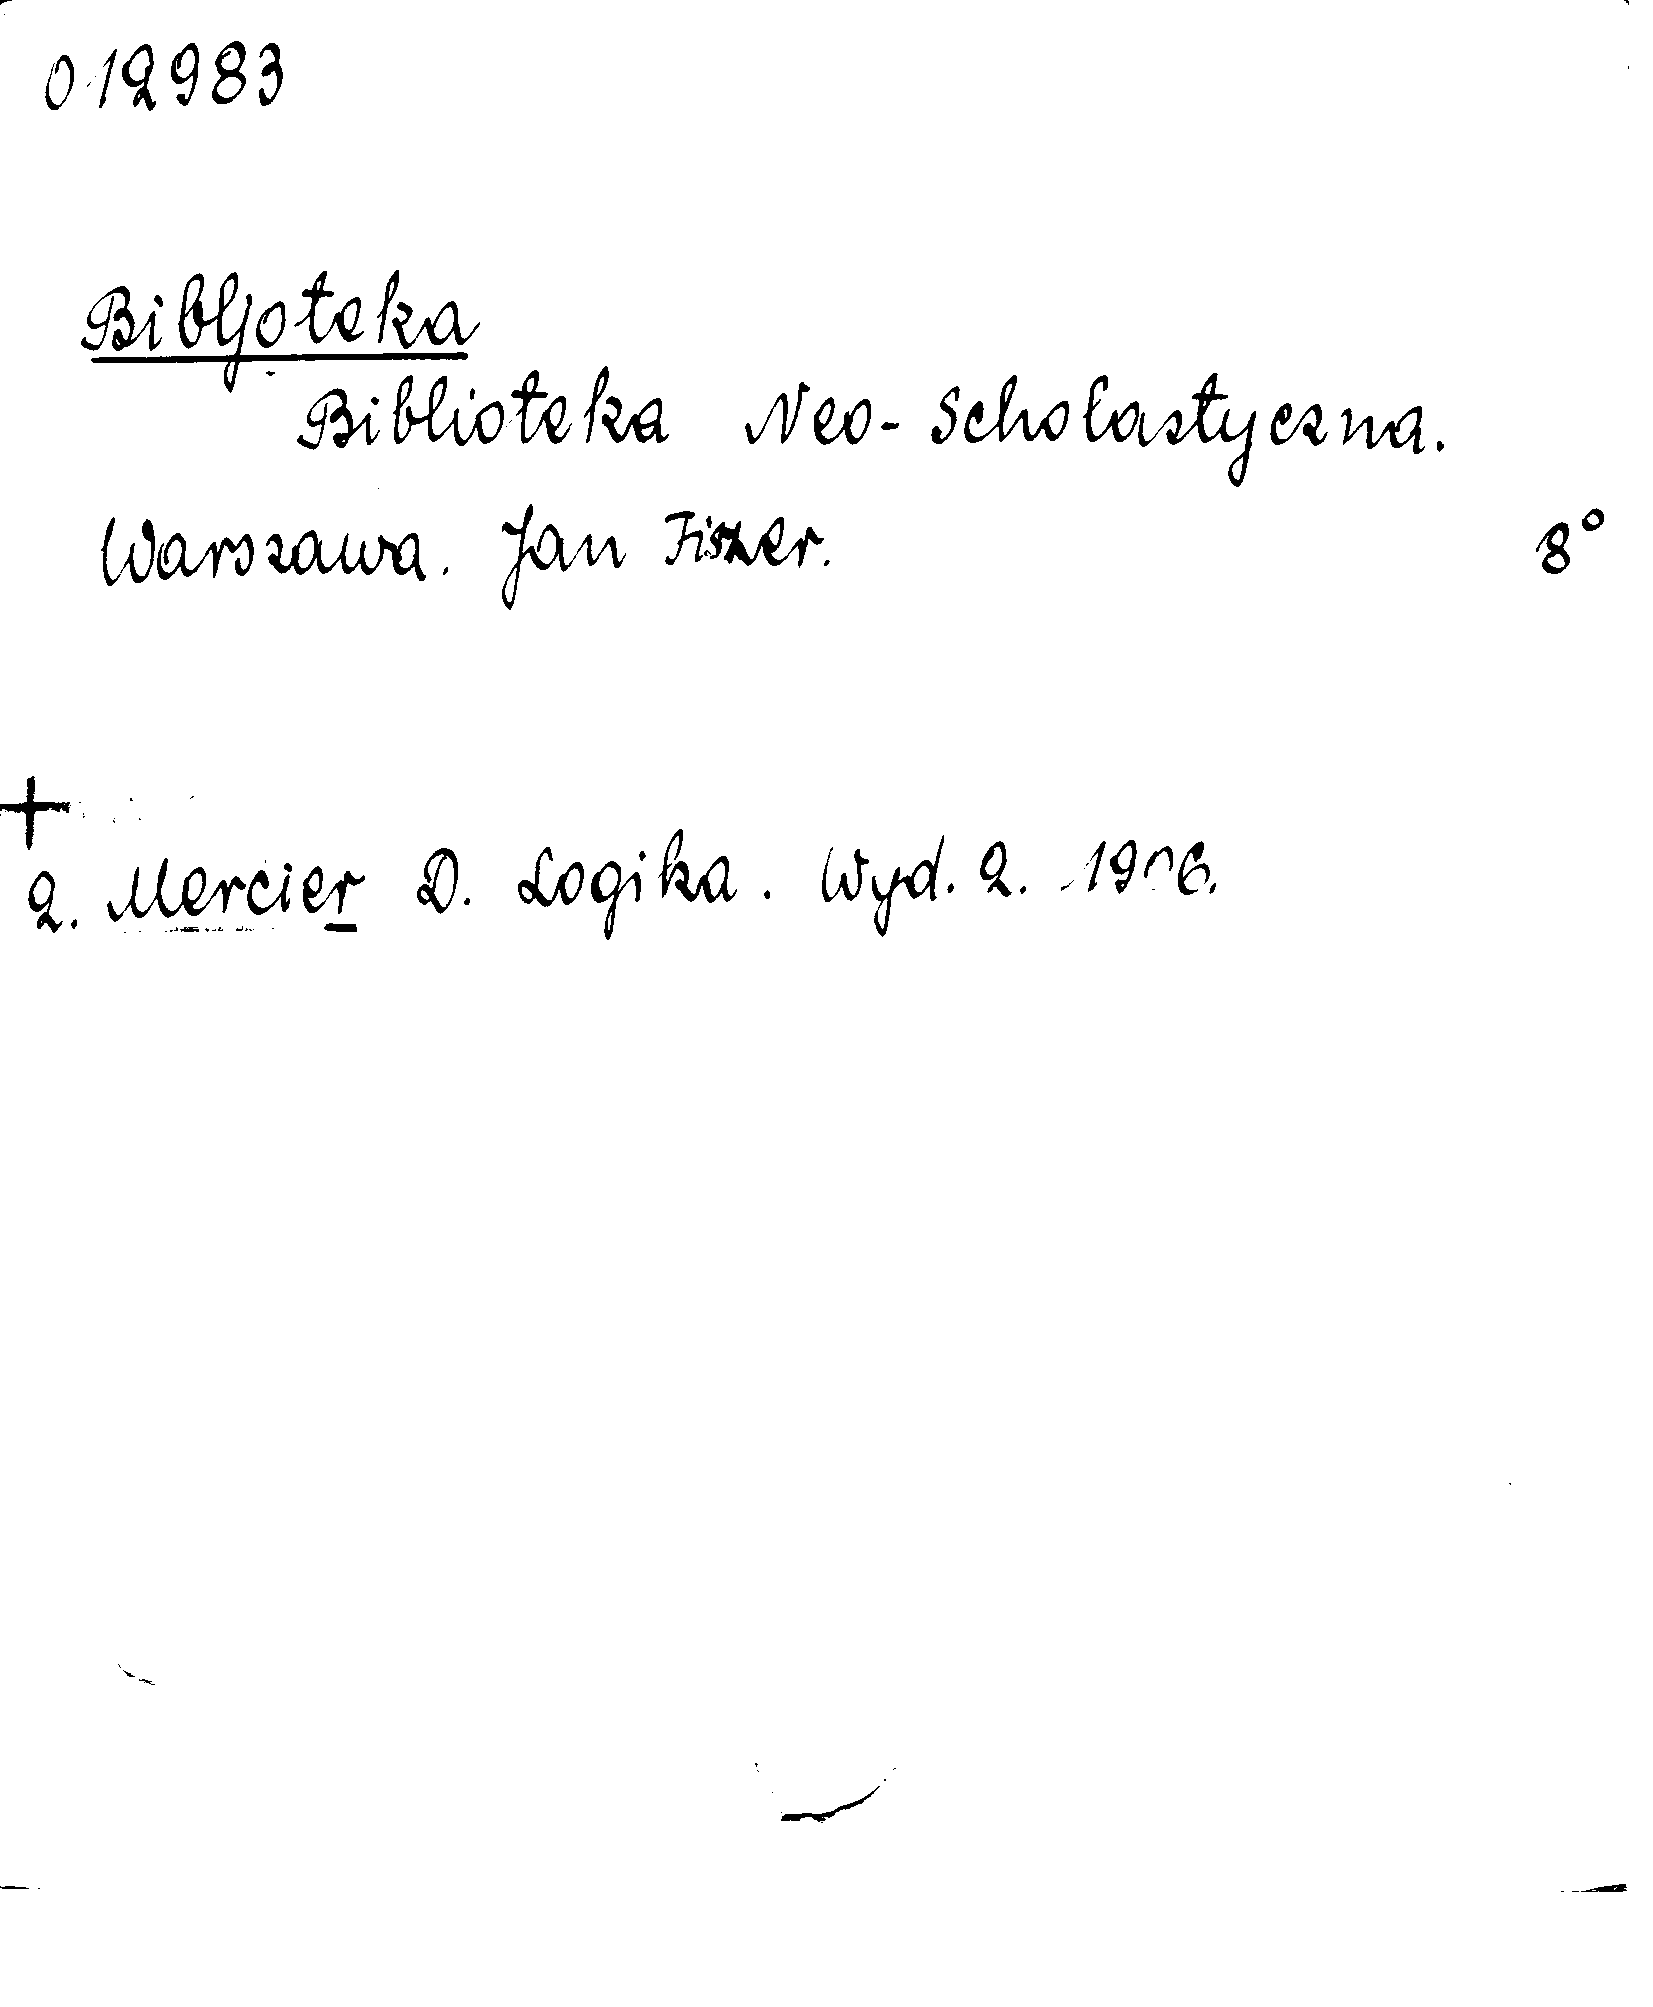 012983
Bibljoteka
Biblioteka Neo-Scholastyczna.
Warszawa. Jan Fiszer. 8°
+
2. Mercier D. Logika. Wyd. 2. 1906.